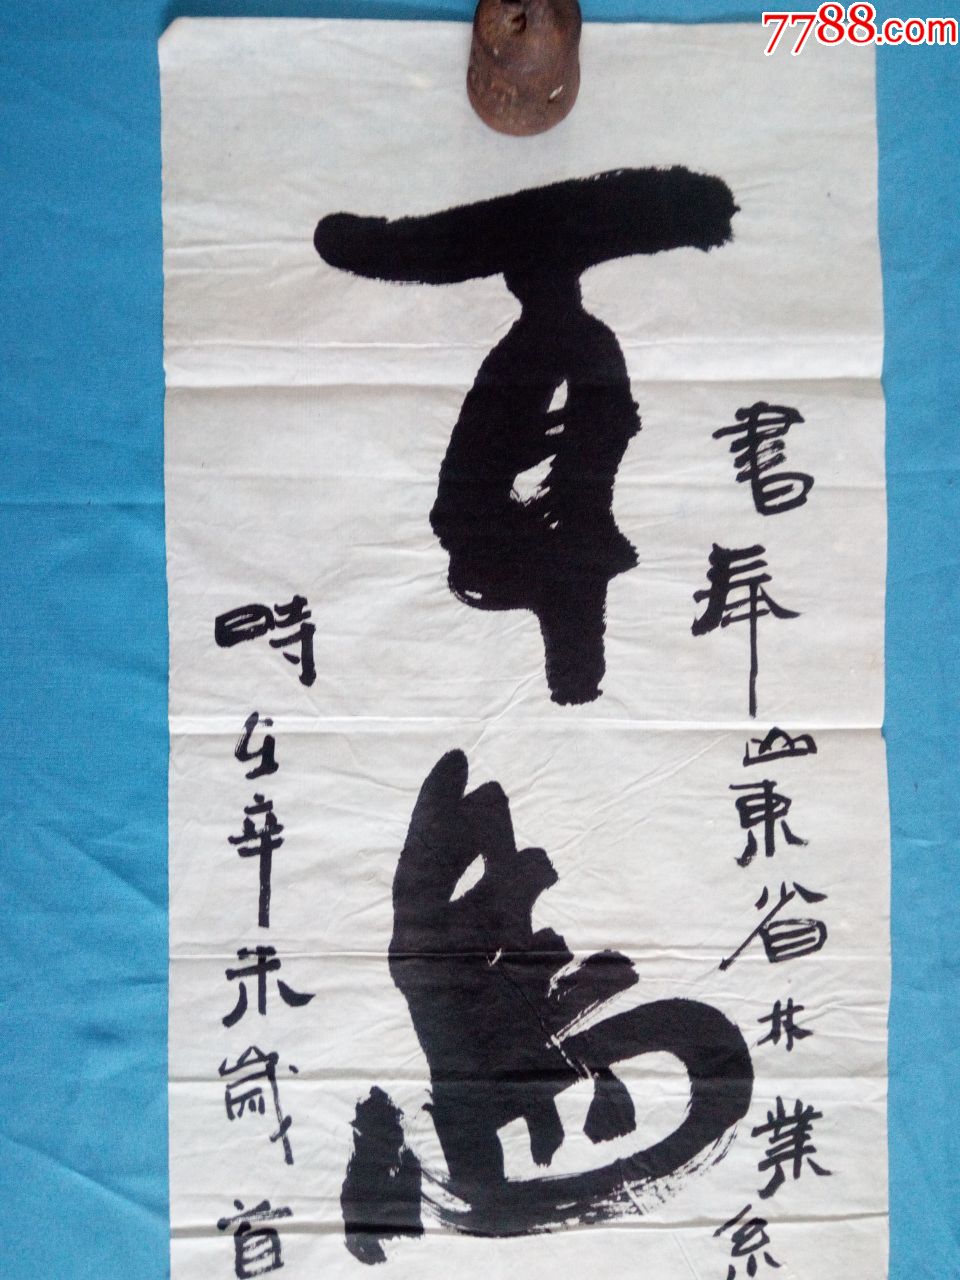 7788.com
書奉山東省林業系
時在辛未歲首